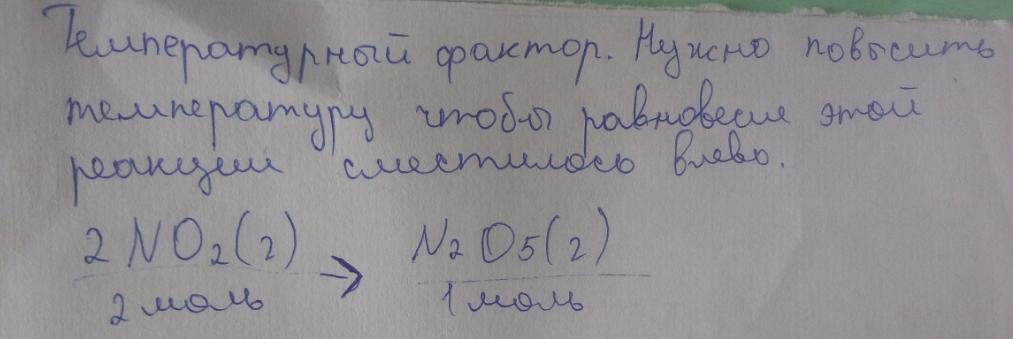 Температурный фактор. Нужно повысить
температуру чтобы равновесие этой
реакции сместилось влево.
2 NO₂(г) → N₂O₅(г)
2 моль 1 моль